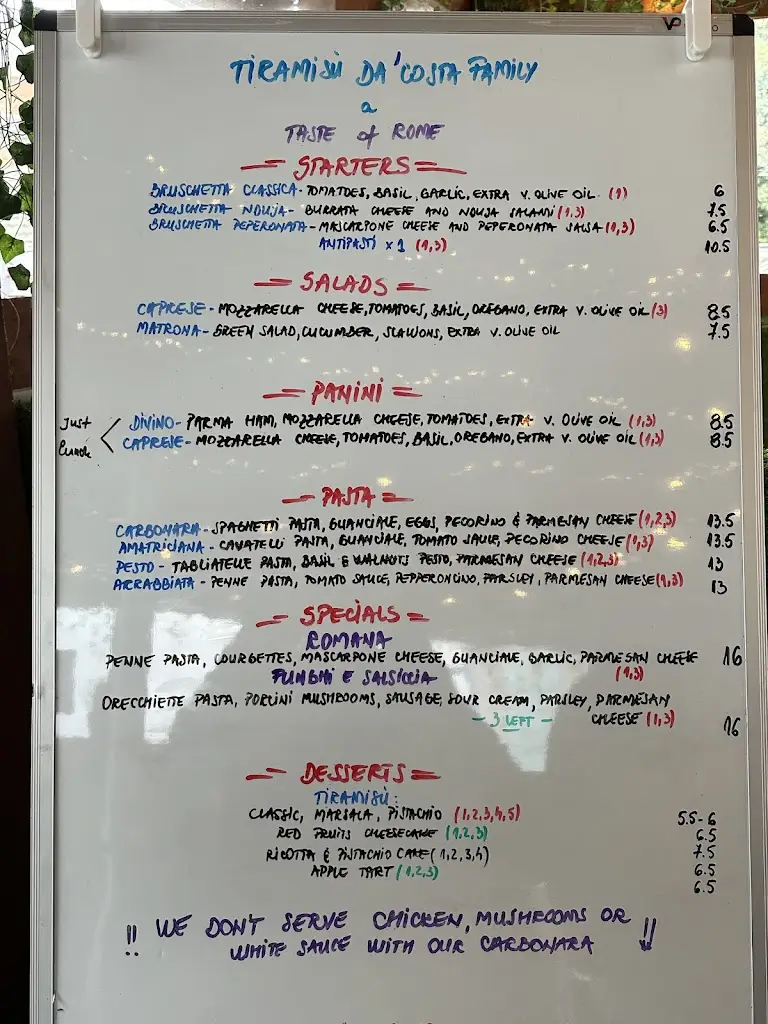 TIRAMISÙ DA'COSTA FAMILY
a
TASTE of ROME
STARTERS
BRUSCHETTA CLASSICA - TOMATOES, BASIL, GARLIC, EXTRA V. OLIVE OIL (1) 6
BRUSCHETTA NDUJA - BURRATA CHEESE AND NDUJA SALAMI (1,3) 7.5
BRUSCHETTA PEPERONATA - MASCARPONE CHEESE AND PEPERONATA SALSA (1,3) 6.5
ANTIPASTI x 1 (1,3) 10.5
SALADS
CAPRESE - MOZZARELLA CHEESE, TOMATOES, BASIL, OREGANO, EXTRA V. OLIVE OIL (3) 8.5
MATRONA - GREEN SALAD, CUCUMBER, SCALLIONS, EXTRA V. OLIVE OIL 7.5
PANINI
Just Lunch
DIVINO - PARMA HAM, MOZZARELLA CHEESE, TOMATOES, EXTRA V. OLIVE OIL (1,3) 8.5
CAPRESE - MOZZARELLA CHEESE, TOMATOES, BASIL, OREGANO, EXTRA V. OLIVE OIL (1,3) 8.5
PASTA
CARBONARA - SPAGHETTI PASTA, GUANCIALE, EGGS, PECORINO & PARMESAN CHEESE (1,2,3) 13.5
AMATRICIANA - CAVATELLI PASTA, GUANCIALE, TOMATO SAUCE, PECORINO CHEESE (1,3) 13.5
PESTO - TAGLIATELLE PASTA, BASIL & WALNUTS PESTO, PARMESAN CHEESE (1,2,3) 13
ARRABBIATA - PENNE PASTA, TOMATO SAUCE, PEPPERONCINO, PARSLEY, PARMESAN CHEESE (1,3) 13
SPECIALS
ROMANA
PENNE PASTA, COURGETTES, MASCARPONE CHEESE, GUANCIALE, GARLIC, PARMESAN CHEESE 16
FUNGHI E SALSICCIA (1,3)
ORECCHIETTE PASTA, PORCINI MUSHROOMS, SAUSAGE, SOUR CREAM, PARSLEY, PARMESAN
- 3 LEFT - CHEESE (1,3) 16
DESSERTS
TIRAMISÙ:
CLASSIC, MARSALA, PISTACHIO (1,2,3,4,5) 5.5-6
RED FRUITS CHEESECAKE (1,2,3) 6.5
RICOTTA & PISTACHIO CAKE (1,2,3,4) 7.5
APPLE TART (1,2,3) 6.5
6.5
!! WE DON'T SERVE CHICKEN, MUSHROOMS OR !!
WHITE SAUCE WITH OUR CARBONARA